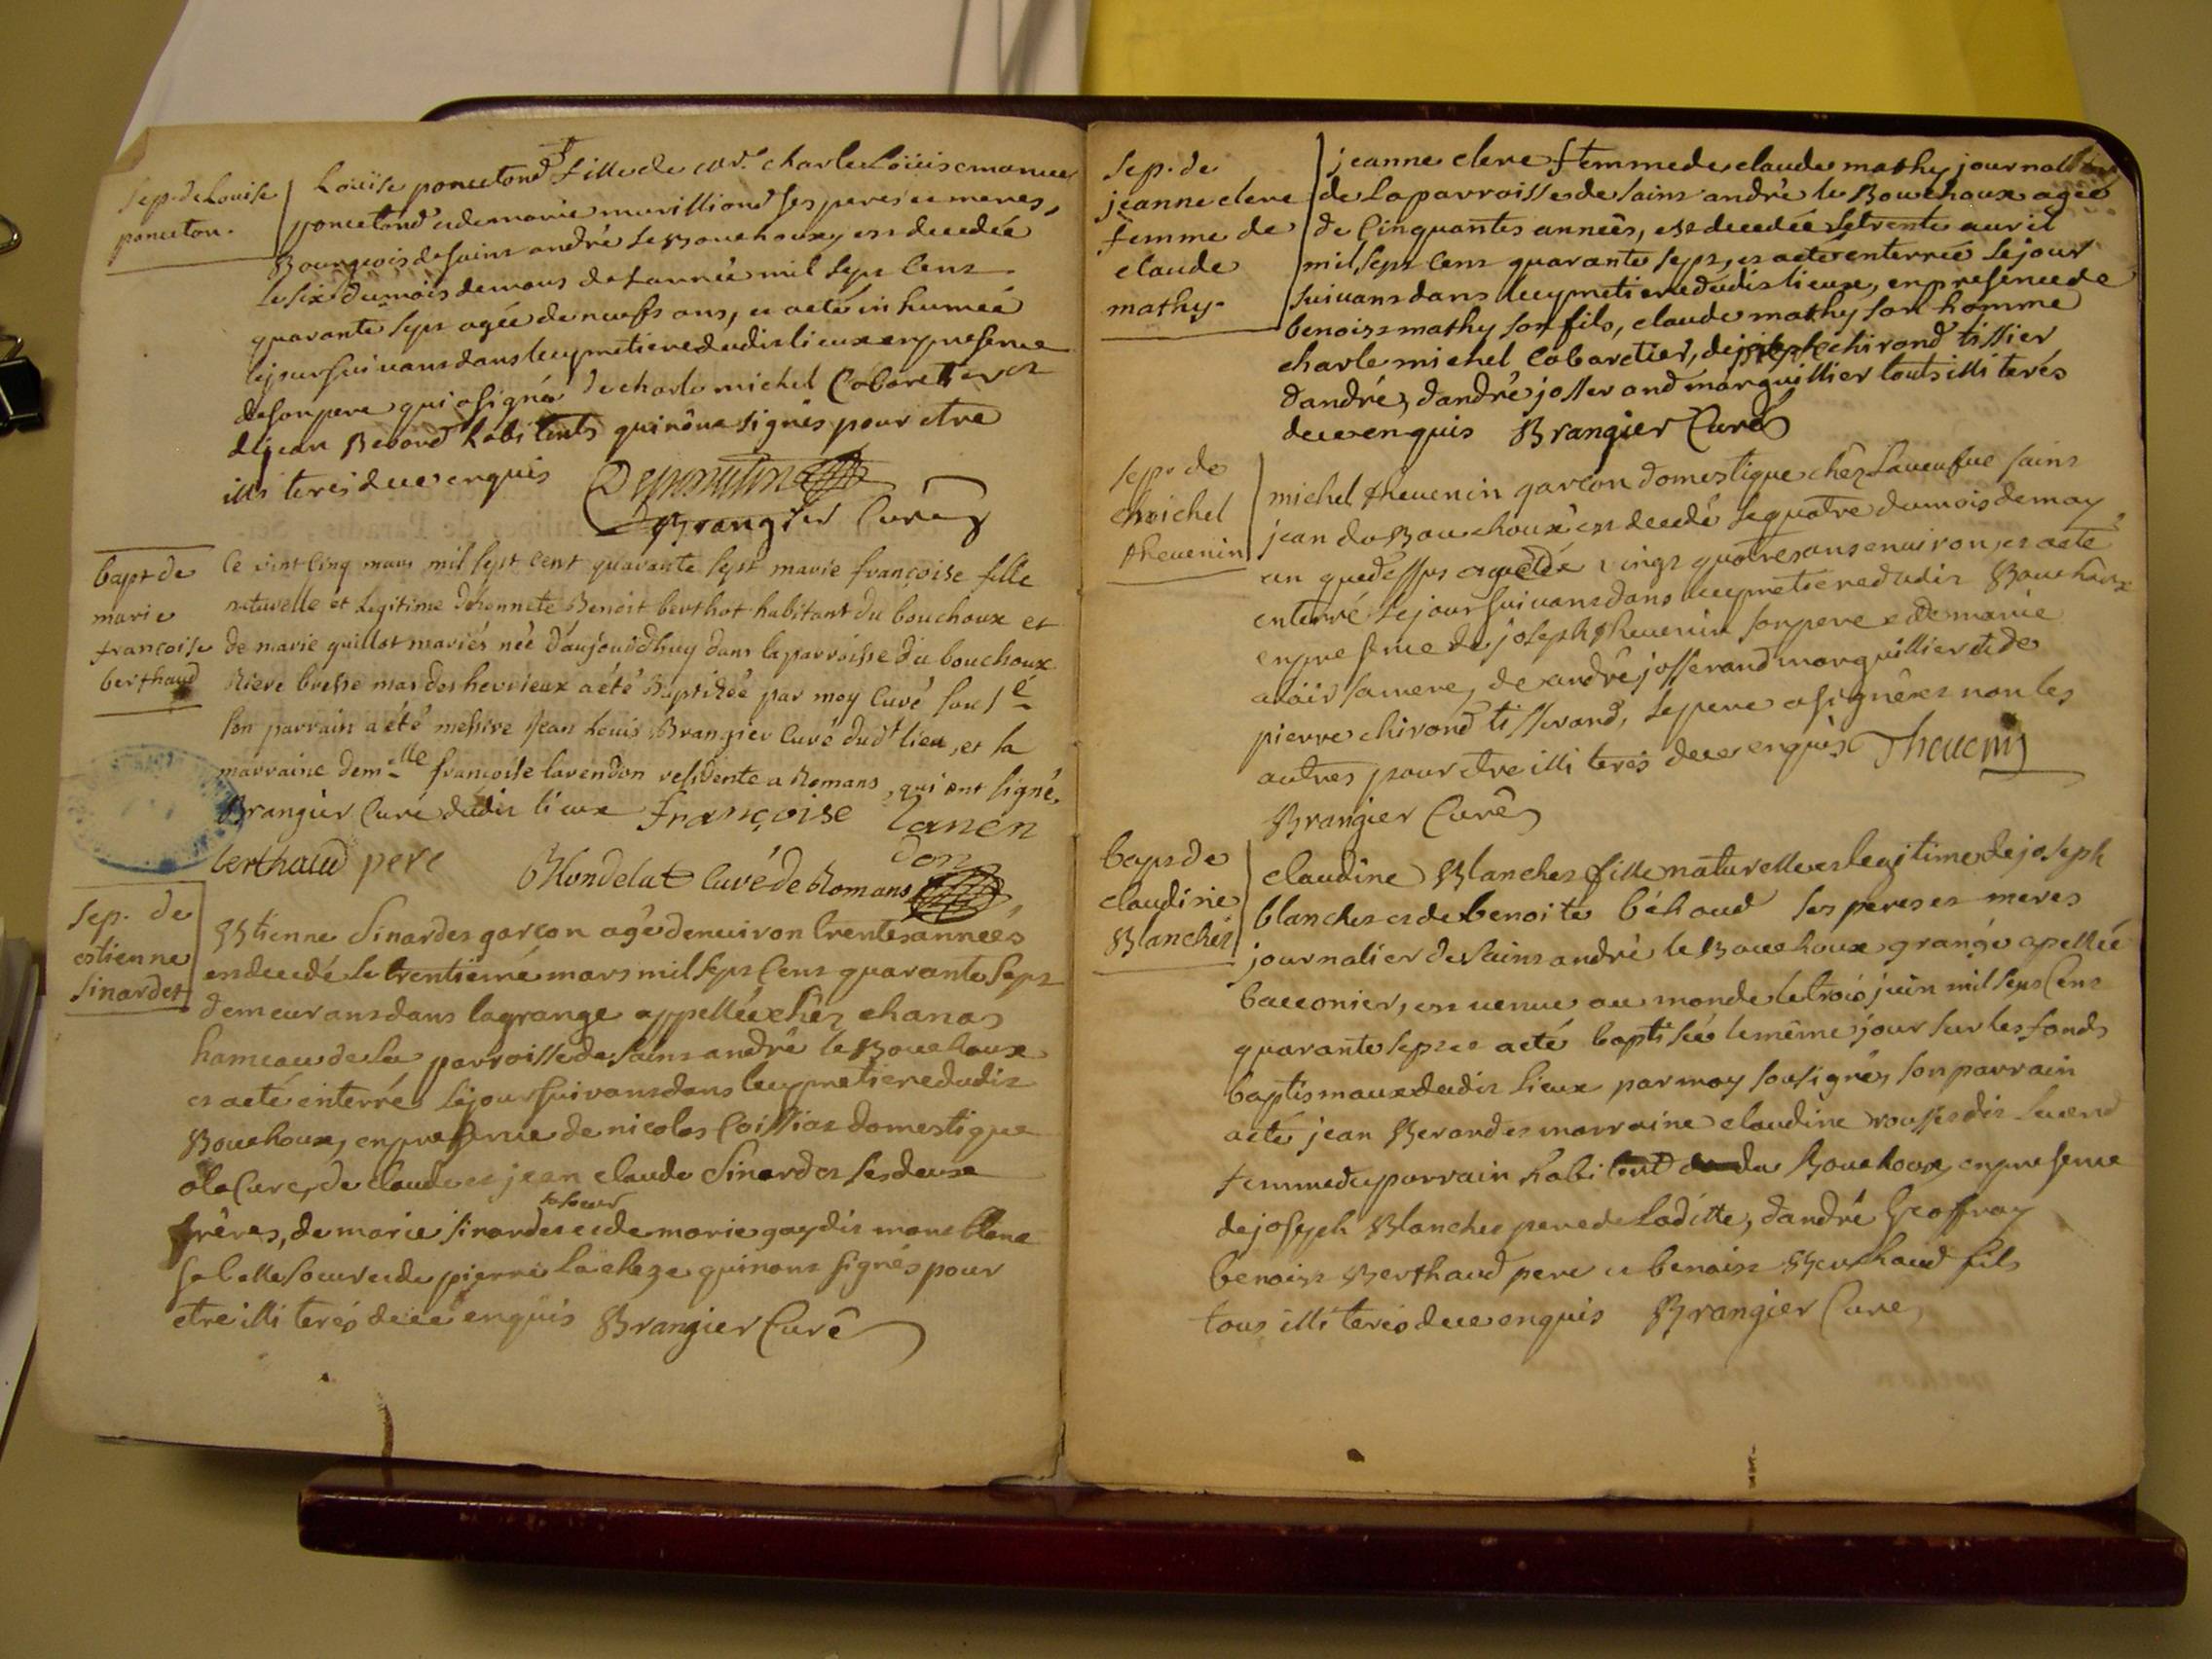 sep. de Louise
ponceton.
Loüise poncetond fille de mr. charle Loüis emanuel
poncetond et de marie murilliond ses peres et meres,
Bourgeois de saint andré le Bouchoux, est decedée
le six du mois de mars de l'année mil sept cent
quarante sept agée de neufs ans, et a eté in humée
le jour suivant dans le cymetiere du dit lieux en presence
de son pere qui a signé de charle michel Cabaretier et
de jean Berord habitents qui n'one signés pour etre
illi terés de ce enquis
Brangier Curé
bapt de
marie
francoise
berthaud
le vint cinq mars mil sept cent quarante sept marie françoise fille
naturelle et Legitime d'honnete Benoit berthot habitant du bouchoux et
de marie guillot mariés née d'aujourd'huy dans la parroisse du bouchoux
Riere bresse mas des hevrieux a été Baptisée par moy Curé sous sé
son parrain a été messire Jean Louis Brangier Curé dudt lieu, et sa
marraine demlle francoise lavendon residente a Romans, qui ont signé.
Brangier Curé dudit lieux françoise lanen
don
berthaud pere Rondelat Curé de Romans
sep. de
estienne
sinardet
Estienne Sinardet garcon agé denviron trentes années
est decedé le trentieme mars mil sept Cent quarante sept
demeurant dans la grange appellée chéz chanas
hameau de la parroisse de saint andré le Bouchoux
et a eté enterré le jour suivant dans le cymetiere du dit
Bouchoux, en presence de nicolas Coissiat domestique
a la Cure, de claude et jean claude Sinardet ses deux
sa soeur
frêres, de marie sinardet et de marie gay dit mont blanc
sa belle soeur et de pierre Lacheze qui nont signés pour
etre illi terés de ce enquis Brangier Curé
sep. de
jeanne clere
femme de
claude
mathy.
jeanne clere femme de claude mathy journallier
de La parroisse de saint andré le Bouchoux agée
de Cinquantes années, est decedée le trente avril
mil sept Cent quarante sept, et a eté enterrée le jour
suivant dans le cymetiere du dit lieux, en presence de
benoist mathy son fils, claude mathy son homme
charle michel Cabaretier, de joseph chirond tissier
d'andré, d'andré josserand marguillier touts illi terés
de ce enquis Brangier Curé
sep. de
michel
thevenin
michel thevenin garcon domestique chéz La veufve saint
jean du Bouchoux est decedé le quatre du mois de may
an que dessus agé de vingt quatres ans environ, et a eté
enterré le jour suivant dans le cymetiere du dit Bouchoux
en presence de joseph thevenin son pere et de marie
sa mere, de andré josserand marguillier et de
pierre chirond tisserand, le pere a signé et non les
autres pour etre illi terés de ce enquis Thevenin
Brangier Curé
bapt de
claudine
Blanchet
claudine Blanchet fille naturelle et legitime de joseph
blanchet et de benoite béhoud ses peres et meres
journalier de saint andré le Bouchoux grange apellée
bacconier, est venue au monde le trois juin mil sept Cent
quarante sept et a eté baptisée le même jour sur les fonds
baptismaux du dit lieux par moy sousigné, son parrain
a eté jean Berord et marraine claudine rousset dit
femme du parrain habitent du Bouchoux, en presence
de joseph Blanchet pere de Laditte, d'andré Geoffray
benoist Berthaud pere et benoist Berthaud fils
tous illi terés de ce enquis Brangier Curé